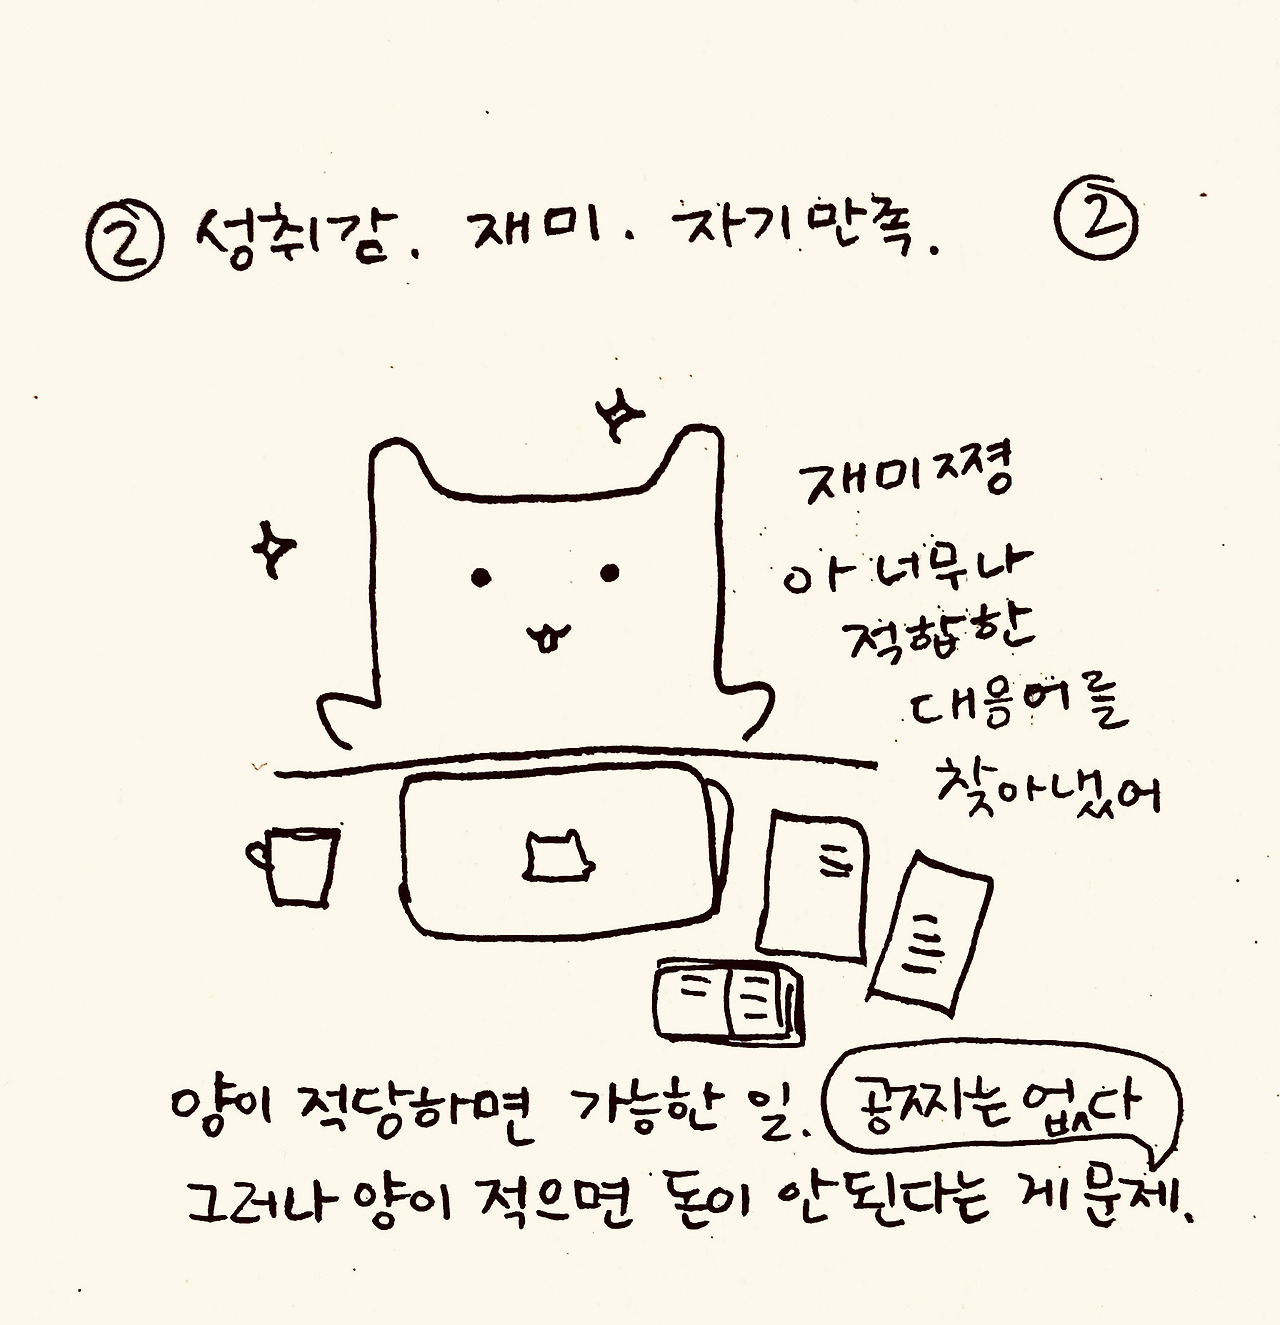 ② 성취감. 재미. 자기만족. ②
재미쪙
아 너무나
적합한
대응어를
찾아냈어
양이 적당하면 가능한 일. 공짜는 없다
그러나 양이 적으면 돈이 안된다는 게 문제.